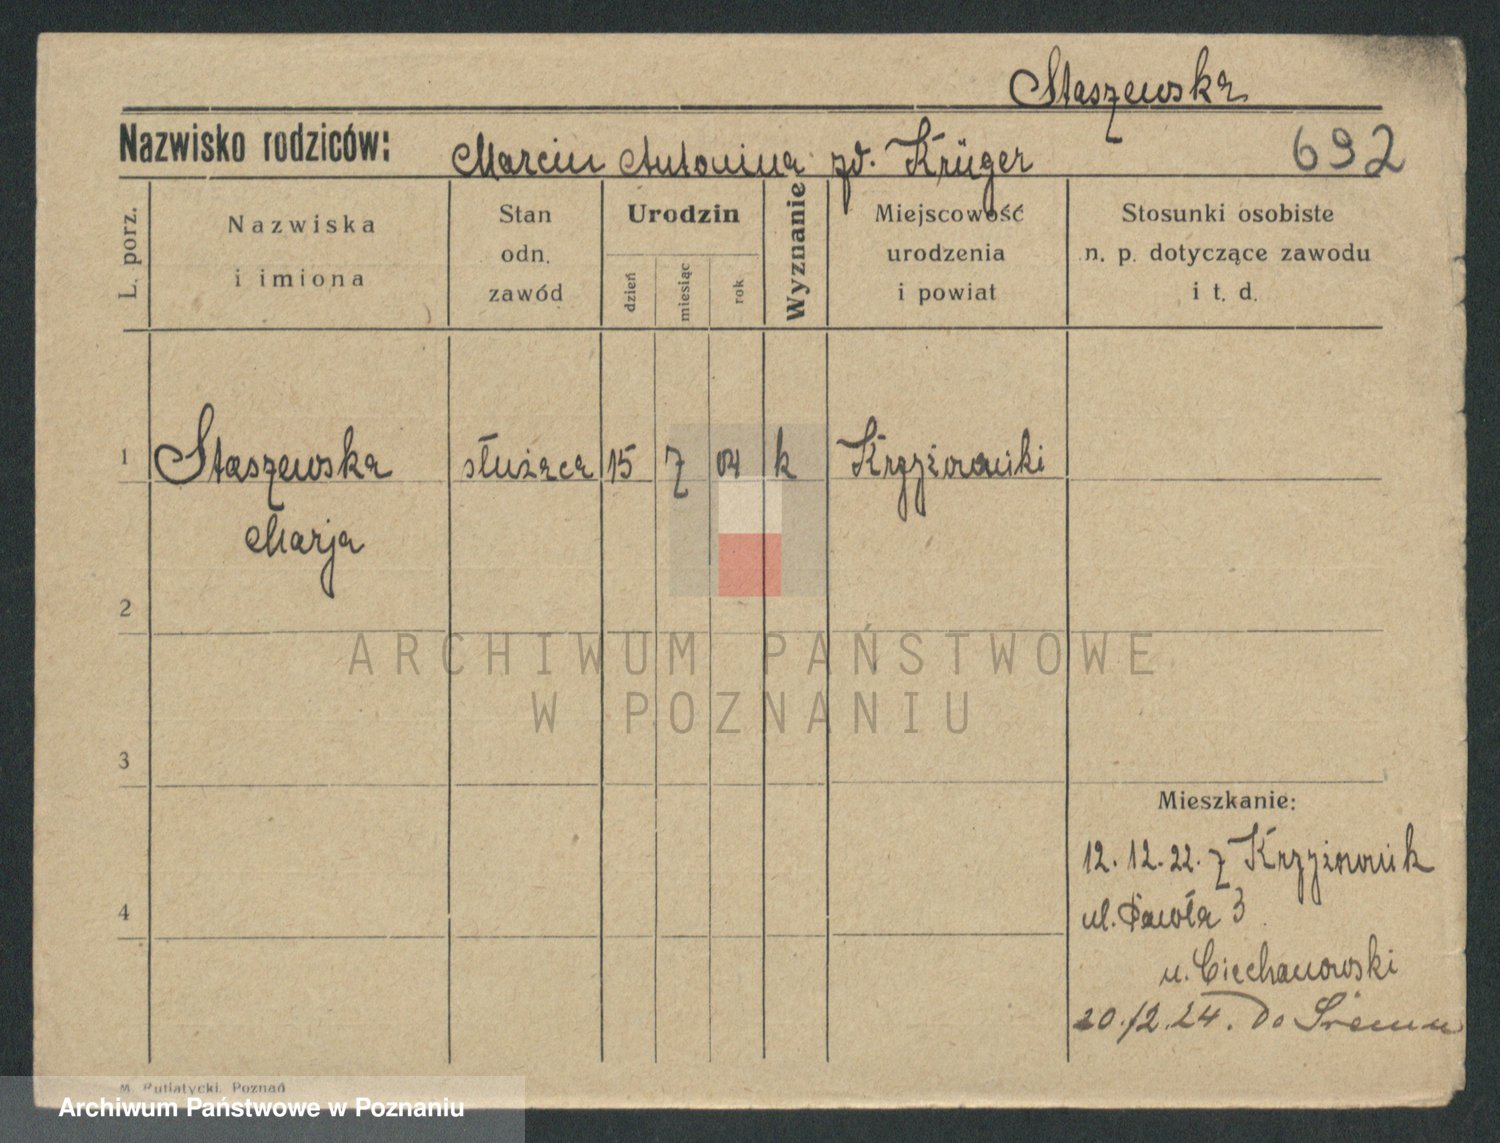 Staszewska
Nazwisko rodziców: Marcin Antonina zd. Krüger 692
L. porz.
Nazwiska
i imiona
Stan
odn.
zawód
Urodzin
dzień
miesiąc
rok
Wyznanie
Miejscowość
urodzenia
i powiat
Stosunki osobiste
n. p. dotyczące zawodu
i t. d.
1 Staszewska służąca 15 7 04 k Krzyżowniki
Marja
2
ARCHIWUM PAŃSTWOWE
W POZNANIU
3
Mieszkanie:
12.12.22. z Krzyżownik
ul. Pawła 3
4
u. Ciechanowski
20.12.24. do Śremu
M. Putiatycki, Poznań
Archiwum Państwowe w Poznaniu